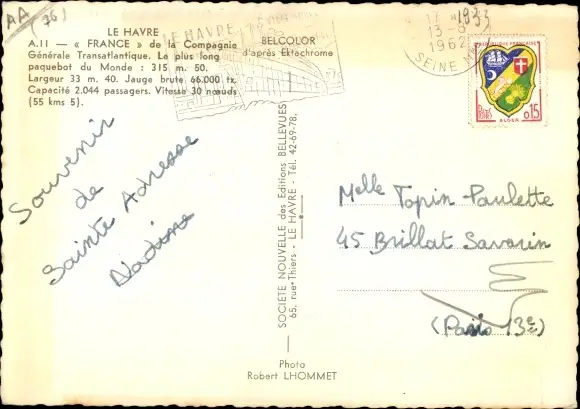 AA
(76)
LE HAVRE
A.11 — « FRANCE » de la Compagnie
Générale Transatlantique. Le plus long
paquebot du Monde : 315 m. 50.
Largeur 33 m. 40. Jauge brute 66.000 tx.
Capacité 2.044 passagers. Vitesse 30 nœuds
(55 kms 5).
BELCOLOR
d'après Ektachrome
LE HAVRE
17
1933
13-8
1962
SEINE
REPUBLIQUE FRANÇAISE
POSTES
0,15
ALGER
Souvenir
de
Sainte Adresse
Nadine
SOCIÉTÉ NOUVELLE des Editions BELLEVUES
65, rue Thiers - LE HAVRE - Tél. 42-69-78.
Melle Topin-Paulette
45 Brillat Savarin
(Paris 13e)
Photo
Robert LHOMMET